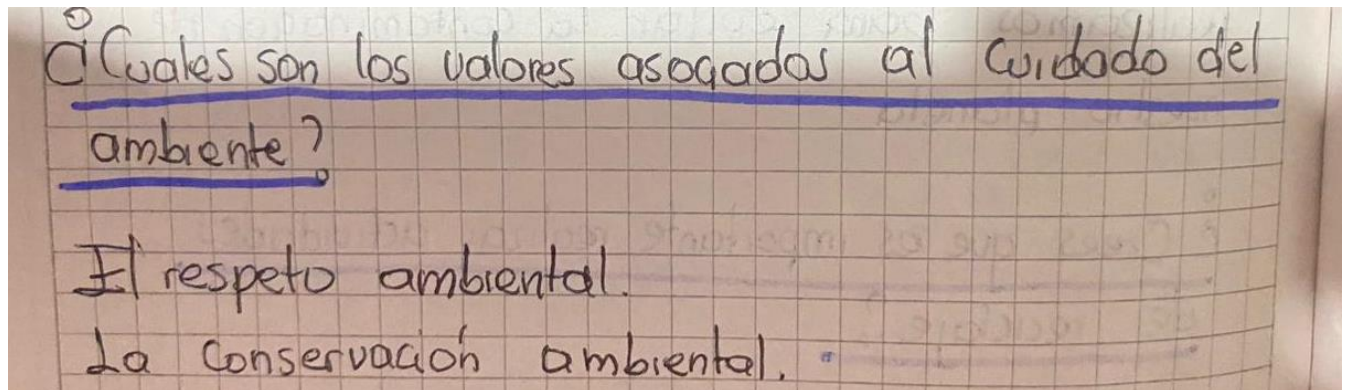 ¿Cuales son los valores asociados al cuidado del
ambiente?
El respeto ambiental.
La conservación ambiental.